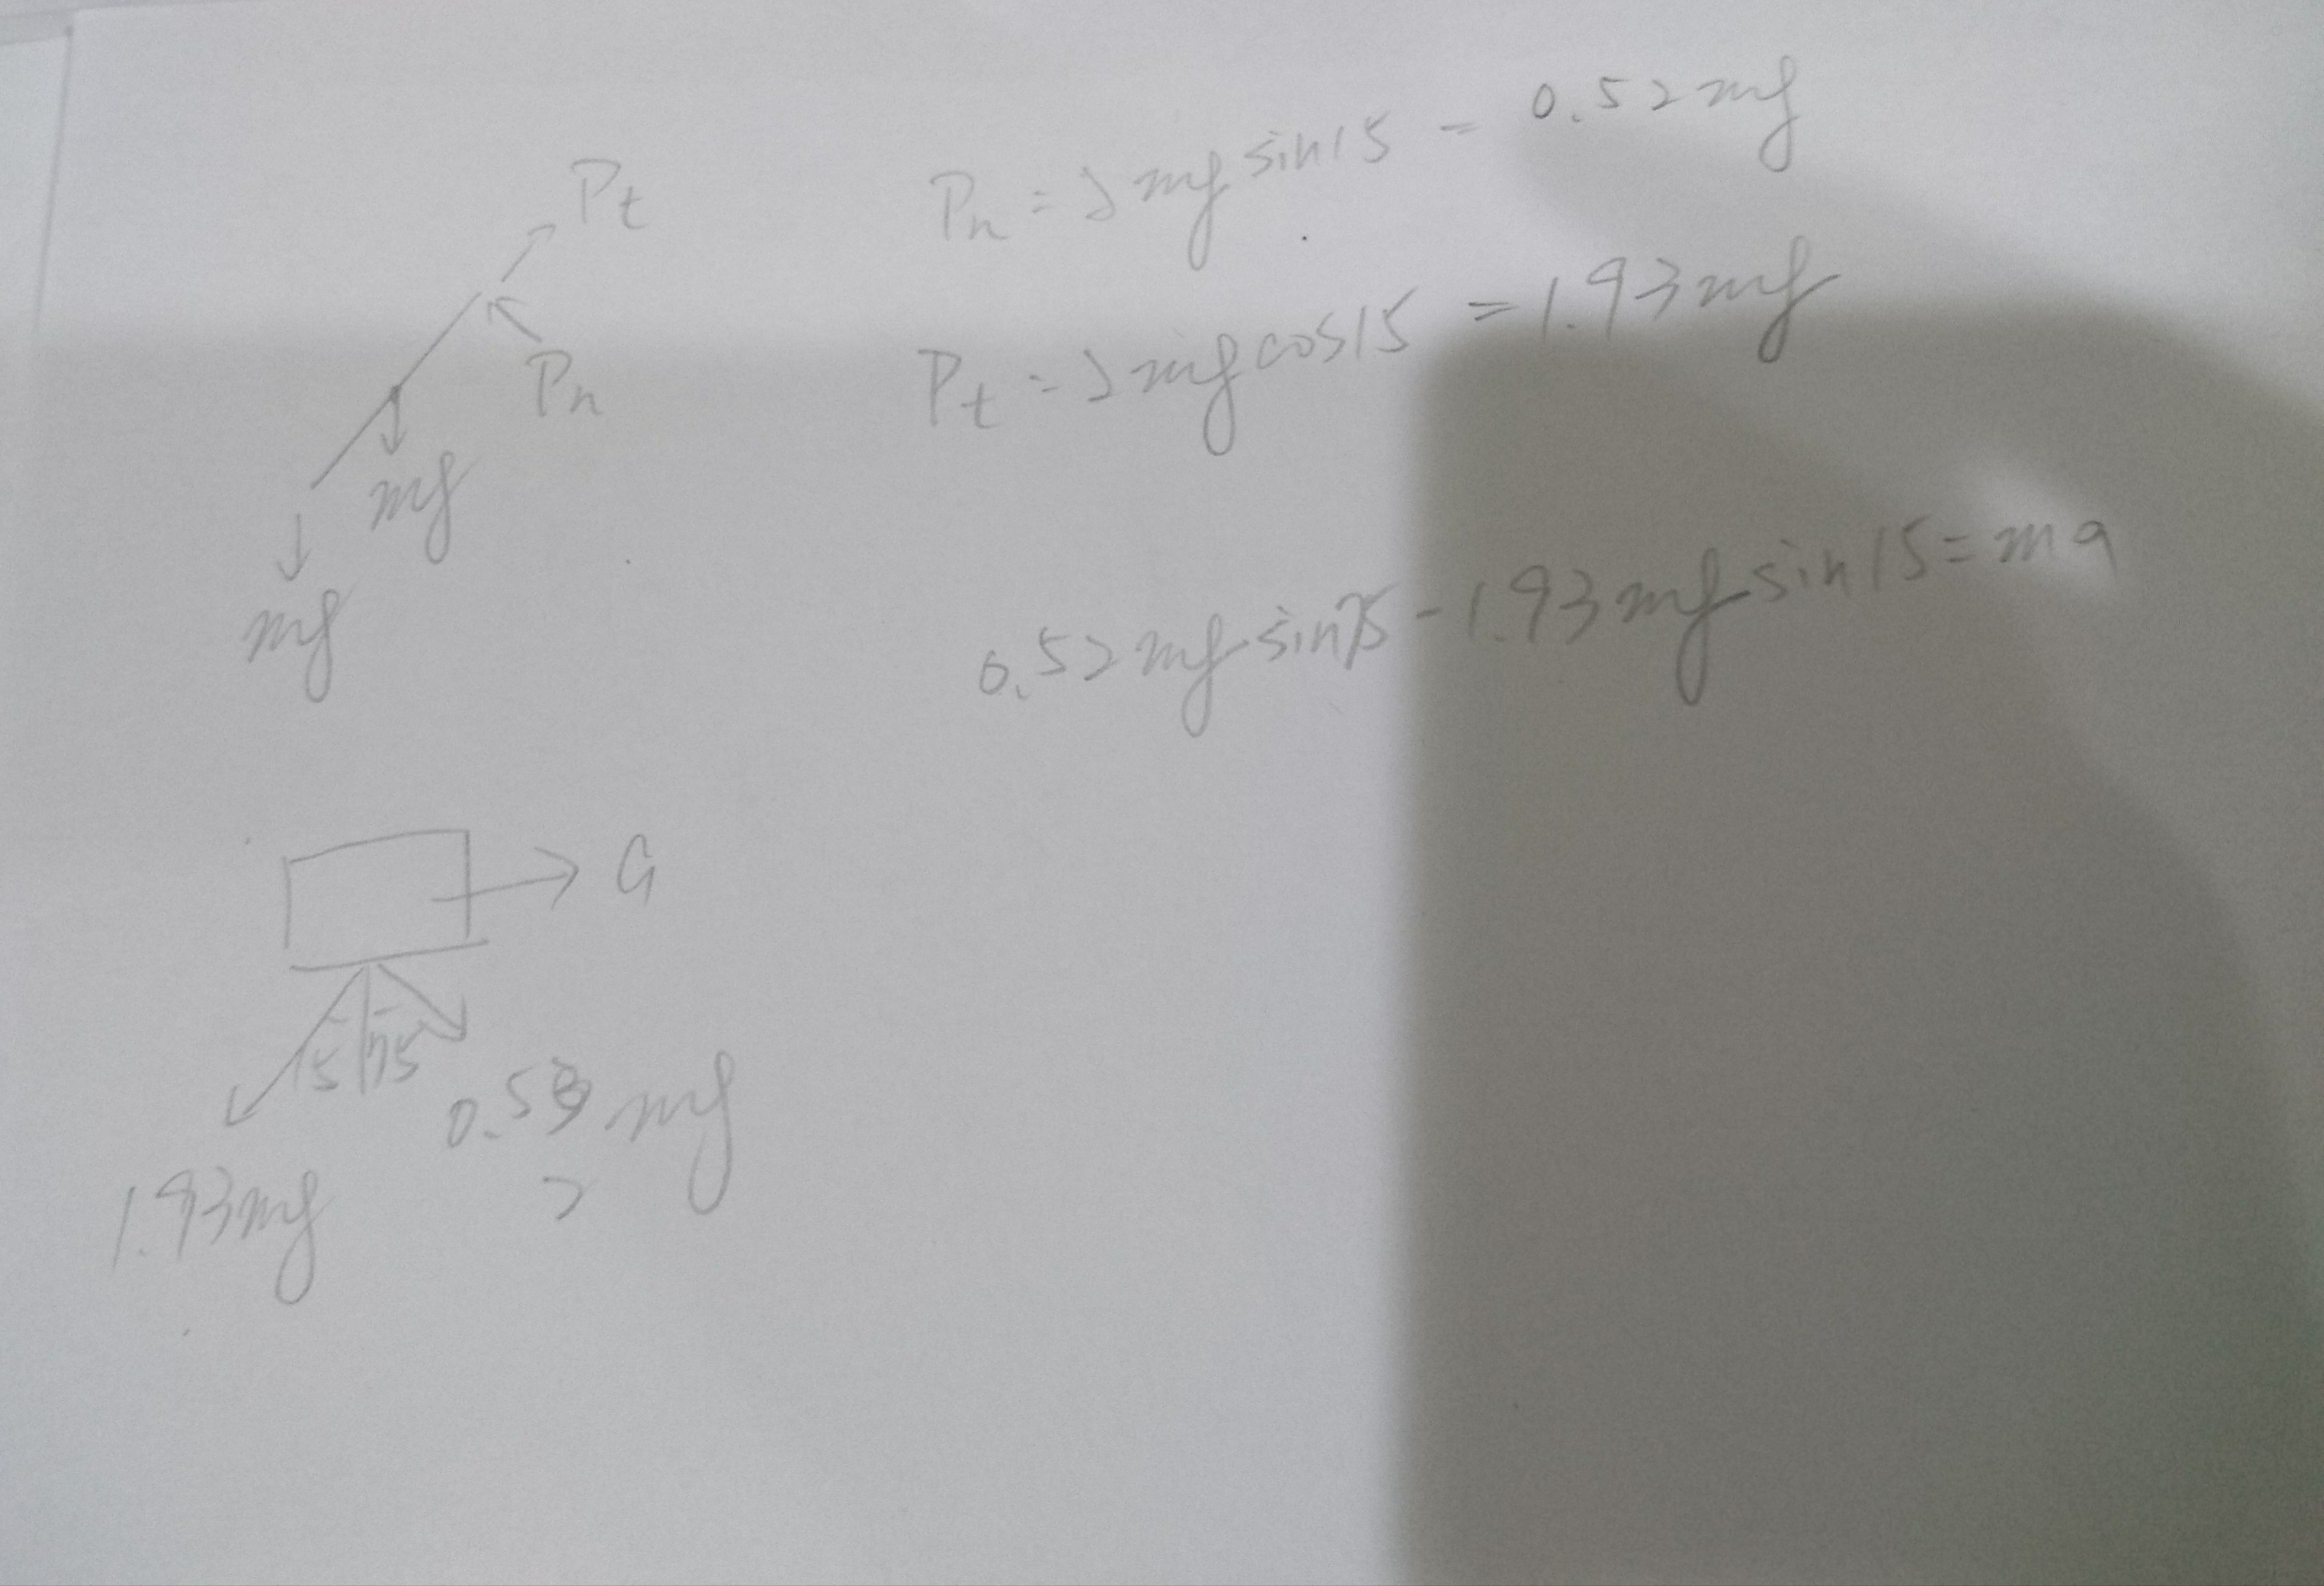 Pt
Pn = 2mg sin15 = 0.52mg
Pn
Pt = 2mg cos15 = 1.93mg
mg
mg
0.52mg sin75 - 1.93mg sin15 = ma
a
15 75
0.52 mg
1.93mg